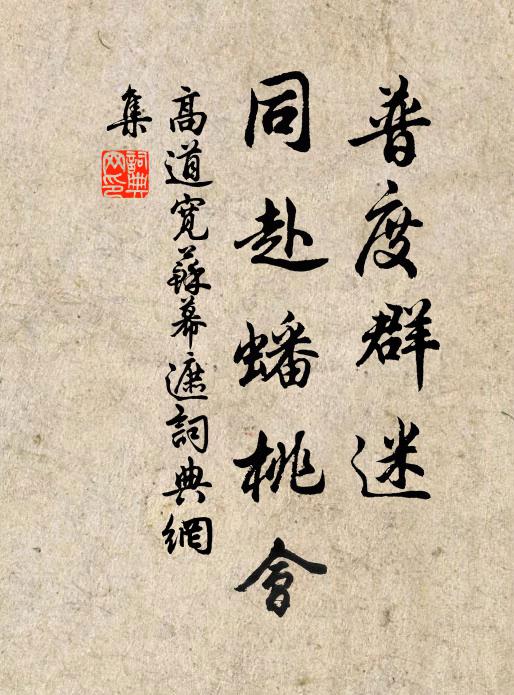 普度群迷
同赴蟠桃會
高道寬蘇幕遮詞典網
集
詞典
网印